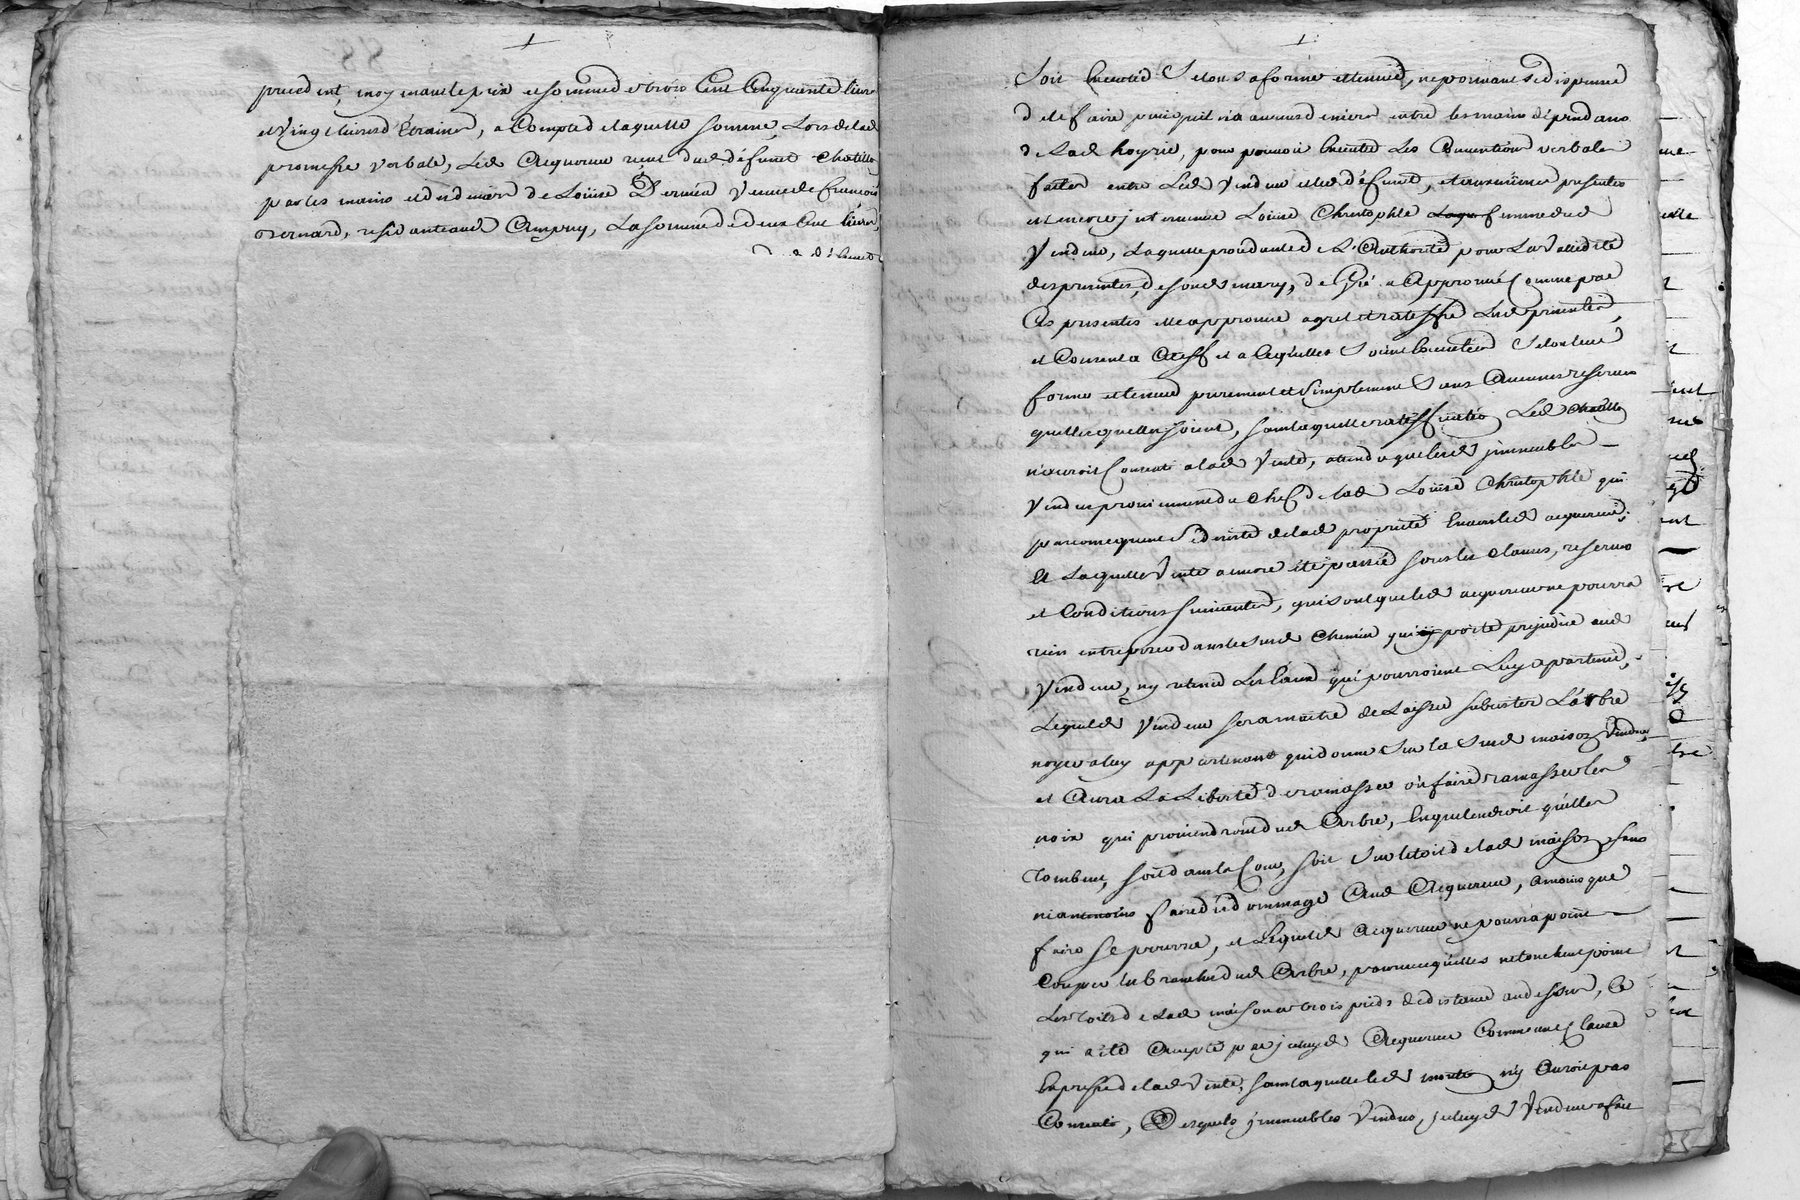 precedent, moyenant le prix et somme de trois Cent Cinquante livres
et vingt livres d'Etraines, a Compte de laquelle somme, Lors de lad
promesse verbale, Led Acquereur remit aud deffunct Chatillo
par les mains et deniers de Louise Vernéa Veuve de François
Bernard, residante aud Ampuy, La somme de deux Cent livres,
soit Executé selon sa forme et teneur, ne pouvant se dispenser
de le faire puisqu'il n'a aucuns deniers entre les mains dépendans
de lad hoyrie, pour pouvoir Executer Les Conventions verbales
faites entre Led Vendeur et led déffunct, et aux mêmes presentes
est encore intervenue Loüise Christophle femme dud
Vendeur, Laquelle procedante de L'Authorité pour La validité
des presentes, de sond mary, de Gré a Approuvé Comme par
Ces presentes elle approuve agrée et ratiffie Lesd presentes,
et Consent a Cet effet a ce qu'elles soient Executées selon leur
forme et teneur purement et simplement sans Aucunes reserves
quelles qu'elles soient, sans laquelle ratiffication Led Chatillo
n'auroit Consenti a lad Vente, attendu que lesd immeubles
Vendus proviennent du Chef de lad Loüise Christophle qui
par consequent se devéte de lad proprieté En avec led acquereur;
Et Laquelle Vente a encore été passée sous les Clauses, reserves
et Conditions suivantes, qui sont que led acquereur ne pourra
rien entreprendre dans le susd Chemin qui porte prejudice aud
Vendeur, ny retenir Les Eaux qui pourroient Luy apartenir,
Lequel Vendeur sera maitre de Laisser subsister L'arbre
noyer a luy appartenant qui donne sur la susd maison Vendue
et Aura La Liberté de ramasser ou faire ramasser les
noix qui proviendront dud Arbre, En quel endroit qu'elles
Tombent, soit dans la Cour, soit sur le toit de lad maison sans
neanmoins faire de dommage Aud Acquereur, a moins que
faire se pourra, et Lequel Acquereur ne pourra point
Couper les Branches dud Arbre, pourvu qu'elles ne touchent point
Les toits de Lad maison a trois pieds de distance au dessus, Ce
qui a été Accepté par iceluy Acquereur Comme une Clause
Expresse de lad Vente, sans laquelle led n'y Auroit pas
Consenti, Desquels immeubles Vendus, iceluy Vendeur a fait